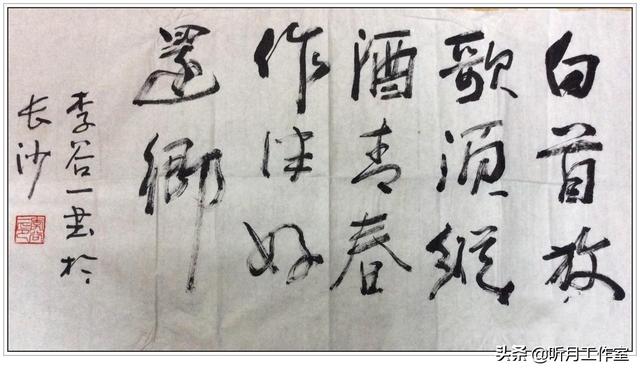 白首放
歌須縱
酒青春
作伴好
還鄉
李谷一书於
长沙
头条 @听月工作室